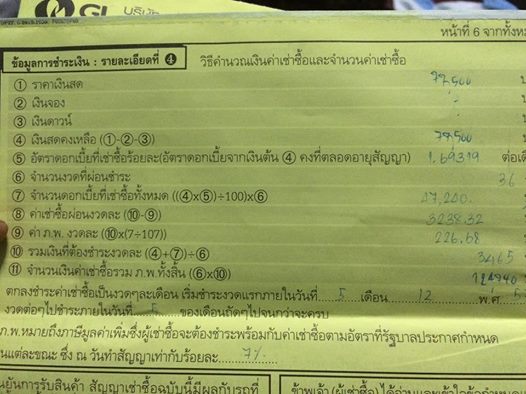 GL บริษัท
หน้าที่ 6 จากทั้งหม
ข้อมูลการชำระเงิน : รายละเอียดที่ ❹ วิธีคำนวณเงินค่าเช่าซื้อและจำนวนค่าเช่าซื้อ
① ราคาเงินสด 77,500
② เงินจอง -
③ เงินดาวน์ -
④ เงินสดคงเหลือ (①-②-③) 77,500
⑤ อัตราดอกเบี้ยที่เช่าซื้อร้อยละ(อัตราดอกเบี้ยจากเงินต้น ④ คงที่ตลอดอายุสัญญา) 1.69319 ต่อเดื
⑥ จำนวนงวดที่ผ่อนชำระ 36
⑦ จำนวนดอกเบี้ยที่เช่าซื้อทั้งหมด ((④x⑤)÷100)x⑥ 47,240.
⑧ ค่าเช่าซื้อผ่อนงวดละ (⑩-⑨) 3238.32
⑨ ค่า ภ.พ. งวดละ (⑩x(7÷107)) 226.68
⑩ รวมเงินที่ต้องชำระงวดละ (④+⑦)÷⑥ 3465
⑪ จำนวนเงินค่าเช่าซื้อรวม ภ.พ.ทั้งสิ้น (⑥x⑩) 124740
ตกลงชำระค่าเช่าซื้อเป็นงวดๆละเดือน เริ่มชำระงวดแรกภายในวันที่ 5 เดือน 12 พ.ศ.
งวดต่อๆไปชำระภายในวันที่ 5 ของเดือนถัดๆไปจนกว่าจะครบ
ภ.พ.หมายถึงภาษีมูลค่าเพิ่มซึ่งผู้เช่าซื้อจะต้องชำระพร้อมกับค่าเช่าซื้อตามอัตราที่รัฐบาลประกาศกำหนด
นแต่ละขณะ ซึ่ง ณ วันทำสัญญาเท่ากับร้อยละ 7%
นยันการรับสินค้า สัญญาเช่าซื้อฉบับนี้มีผลกับรถที่ ข้าพเจ้า (ผู้เช่าซื้อ) ได้อ่านและเข้าใจข้อกำหนด